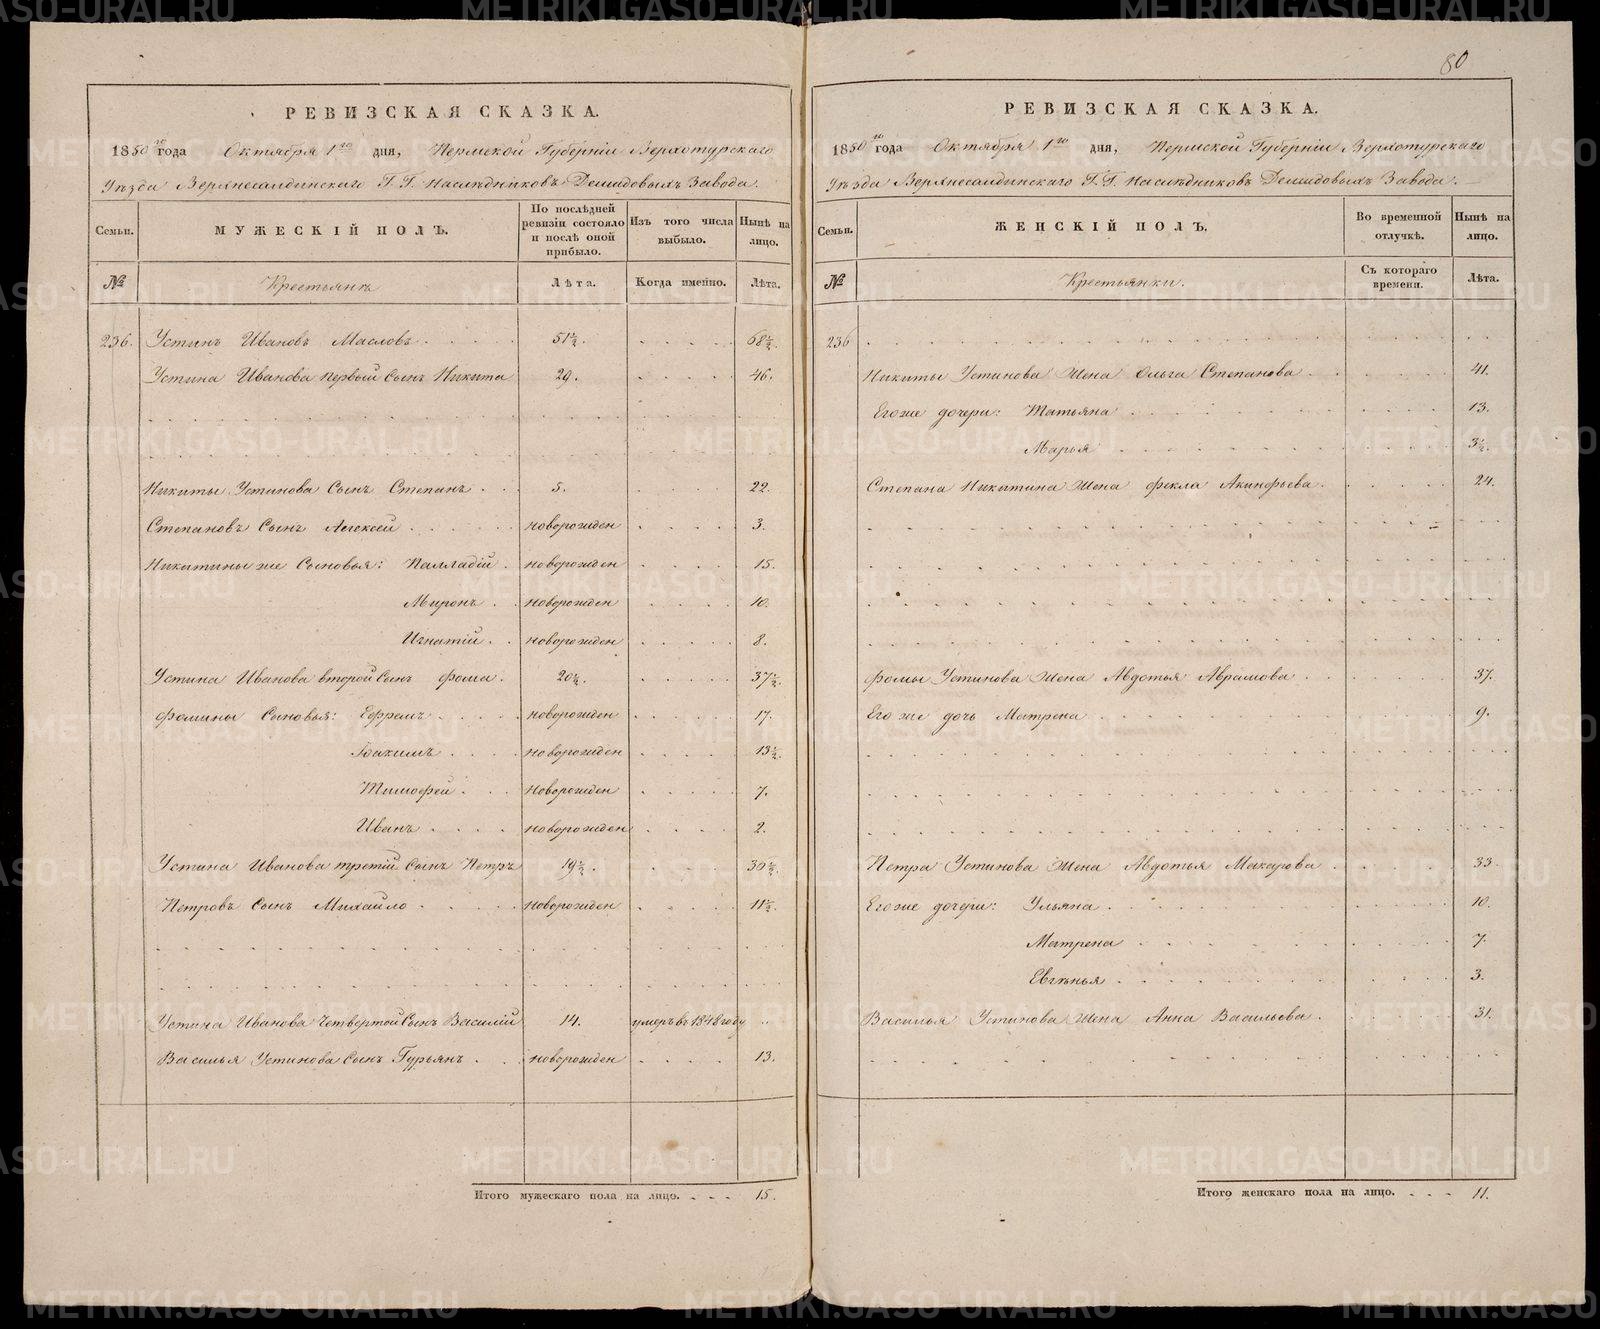 80
РЕВИЗСКАЯ СКАЗКА.
1850го года Октября 1го дня, Пермской Губерніи Верхотурскаго
Уѣзда Верхнесалдинскаго Г.Г. Наслѣдниковъ Демидовыхъ Завода.
Семьи. МУЖЕСКІЙ ПОЛЪ. По послѣдней ревизіи состояло и послѣ оной прибыло. Изъ того числа выбыло. Нынѣ на лицо.
№ Крестьянъ Лѣта. Когда именно. Лѣта.
236. Устинъ Ивановъ Масловъ 51½. 68½.
Устина Иванова первый Сынъ Никита 29. 46.
Никиты Устинова Сынъ Степанъ 5. 22.
Степановъ Сынъ Алексей новорожден 3.
Никитины же Сыновья: Палладій новорожден 15.
Миронъ новорожден 10.
Игнатій новорожден 8.
Устина Иванова второй Сынъ Фома 20½. 37½.
Фомины Сыновья: Ефремъ новорожден 17.
Іоакимъ новорожден 13½.
Тимофей новорожден 7.
Иванъ новорожден 2.
Устина Иванова третій Сынъ Петръ 19½. 36½.
Петровъ Сынъ Михайло новорожден 11½.
Устина Иванова Четвертой Сынъ Василій 14. умеръ въ 1848 году
Василья Устинова Сынъ Гурьянъ новорожден 13.
Итого мужескаго пола на лицо. 15.
РЕВИЗСКАЯ СКАЗКА.
1850го года Октября 1го дня, Пермской Губерніи Верхотурскаго
Уѣзда Верхнесалдинскаго Г.Г. Наслѣдниковъ Демидовыхъ Завода.
Семьи. ЖЕНСКІЙ ПОЛЪ. Во временной отлучкѣ. Нынѣ на лицо.
№ Крестьянки. Съ котораго времени. Лѣта.
236
Никиты Устинова Жена Ольга Степанова 41.
Его же дочери: Татьяна 13.
Марья 3½.
Степана Никитина Жена Фекла Акинфьева 24.
Фомы Устинова Жена Авдотья Абрамова 37.
Его же дочь Матрена 9.
Петра Устинова Жена Авдотья Макарова 33.
Его же дочери: Ульяна 10.
Матрена 7.
Евгѣнья 3.
Василья Устинова Жена Анна Васильева 31.
Итого женскаго пола на лицо. 11.
METRIKI.GASO-URAL.RU